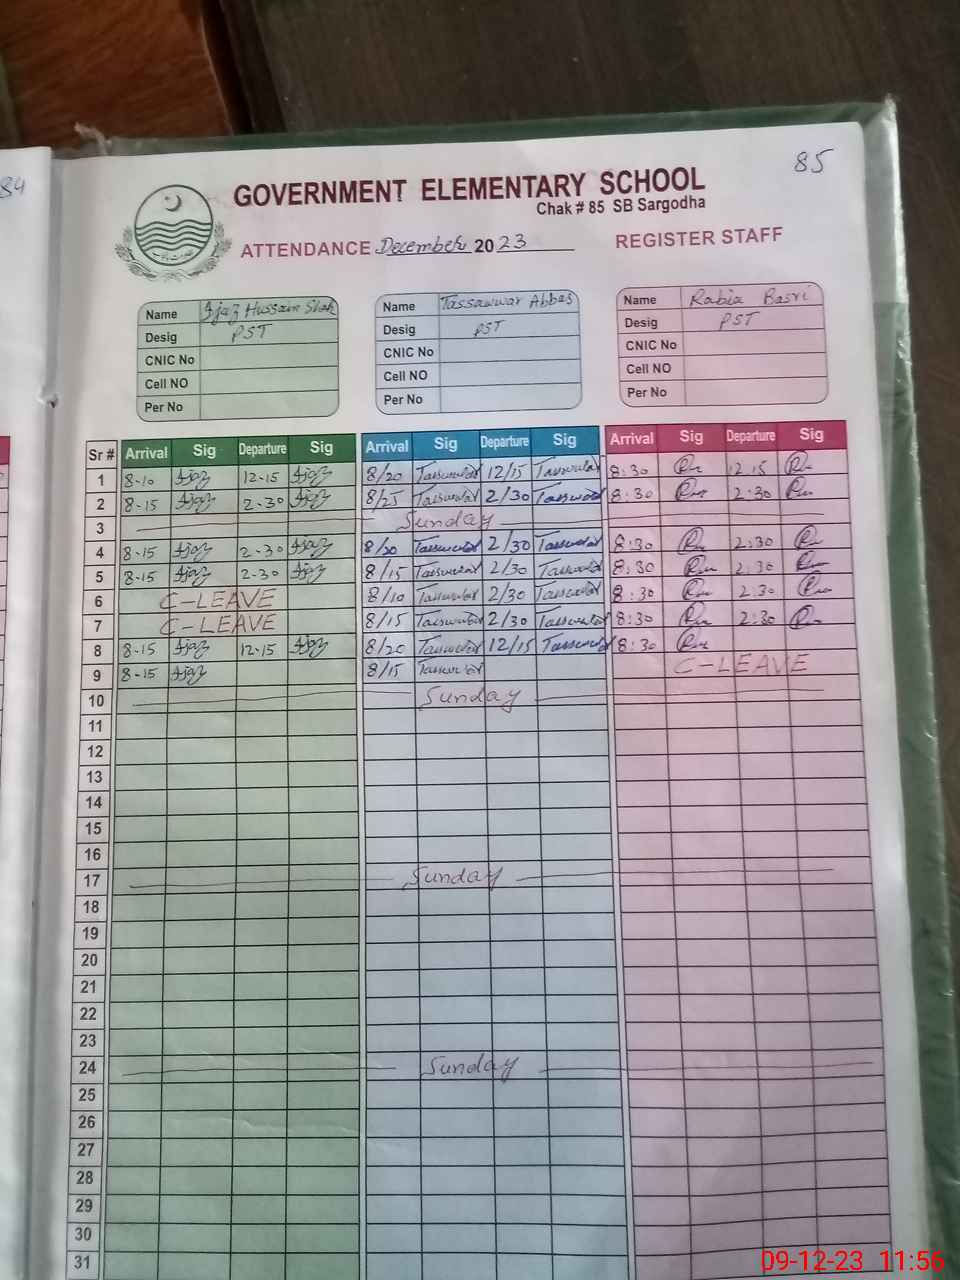 84
85
GOVERNMENT ELEMENTARY SCHOOL
Chak # 85 SB Sargodha
ATTENDANCE December 2023 REGISTER STAFF
Name Ijaz Hussain Shah Name Tassawwar Abbas Name Rabia Basri
Desig PST Desig PST Desig PST
CNIC No CNIC No CNIC No
Cell NO Cell NO Cell NO
Per No Per No Per No
Sr # Arrival Sig Departure Sig Arrival Sig Departure Sig Arrival Sig Departure Sig
1 8-10 Ijaz 12-15 Ijaz 8/20 12/15 8:30 12:15
2 8-15 Ijaz 2-30 Ijaz 8/25 2/30 8:30 2:30
3 Sunday
4 8-15 Ijaz 2-30 Ijaz 8/20 2/30 8:30 2:30
5 8-15 Ijaz 2-30 Ijaz 8/15 2/30 8:30 2:30
6 C-LEAVE 8/10 2/30 8:30 2:30
7 C-LEAVE 8/15 2/30 8:30 2:30
8 8-15 Ijaz 12-15 Ijaz 8/20 12/15 8:30
9 8-15 Ijaz 8/15 C-LEAVE
10 Sunday
11
12
13
14
15
16
17 Sunday
18
19
20
21
22
23
24 Sunday
25
26
27
28
29
30
31
09-12-23 11:56